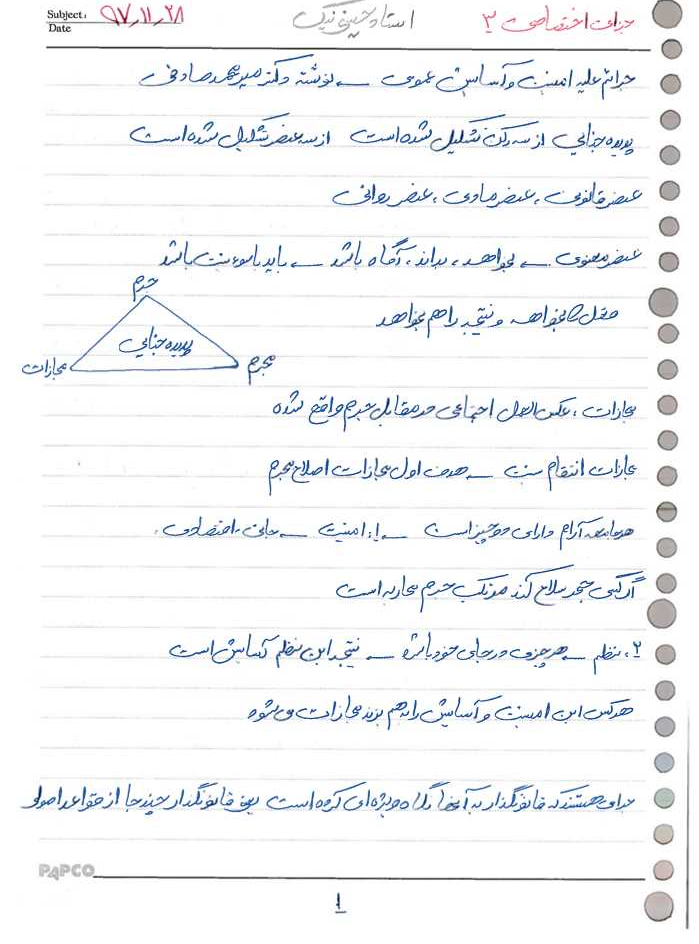 Subject: ۹۷،۱۱،۲۸
Date
استاد حسینی نیک
جزای اختصاصی ۳
جرائم علیه امنیت و آسایش عمومی ← نوشته دکتر میرمحمد صادقی
پدیده جنایی از سه رکن تشکیل شده است از سه عنصر تشکیل شده است
عنصر قانونی، عنصر مادی، عنصر روانی
عنصر معنوی ← بخواهد، بداند، آگاه باشد ← باید با سوء نیت باشد
فعل را بخواهد و نتیجه را هم بخواهد
جرم
پدیده جنایی
مجازات
مجرم
مجازات: عکس العمل اجتماعی در مقابل جرم واقع شده
مجازات انتقام نیست ← هدف اول مجازات اصلاح مجرم
هر جامعه آرام دارای دو چیز است ← ۱: امنیت ← جانی، اقتصادی.
اگر کسی جهت سلاح کند مرتکب جرم محاربه است
۲: نظم ← هر چیزی در جای خود باشد ← نتیجه این نظم آسایش است
هرکس این امنیت و آسایش را به هم بزند مجازات می شود
جرای هستند که قانونگذار به آنها نگاه ویژه ای کرده است یعنی قانونگذار چند جا از قواعد اصولی
PAPCO
۱